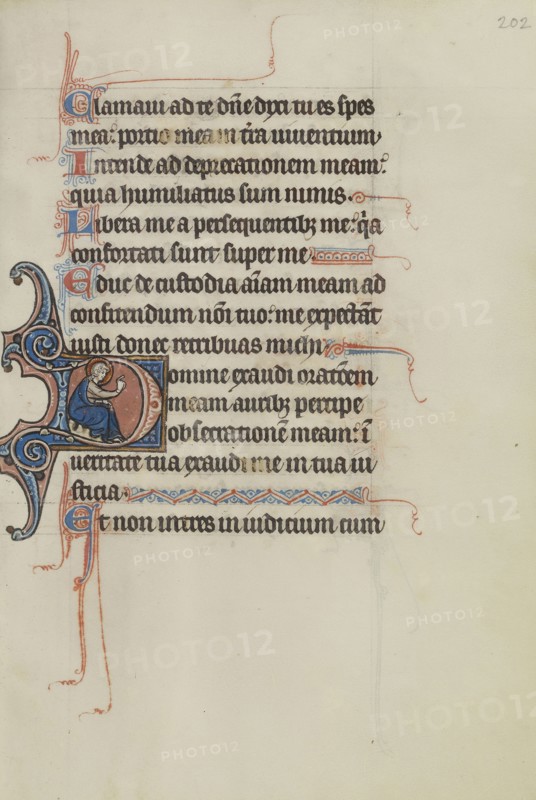 202
Clamaui ad te dñe dixi tu es spes
mea: portio mea in t̃ra uiuentium
Intende ad deprecationem meam:
quia humiliatus sum nimis.
Libera me a persequentibꝫ me: q̃a
confortati sunt super me
Educ de custodia ãiam meam ad
confitendum nõi tuo: me expectãt
iusti donec retribuas michi
Domine exaudi orat̃oem
meam auribꝫ percipe
obsecrationẽ meam: ĩ
ueritate tua exaudi me in tua iu
sticia.
Et non intres in iudicium cum
PHOTO12